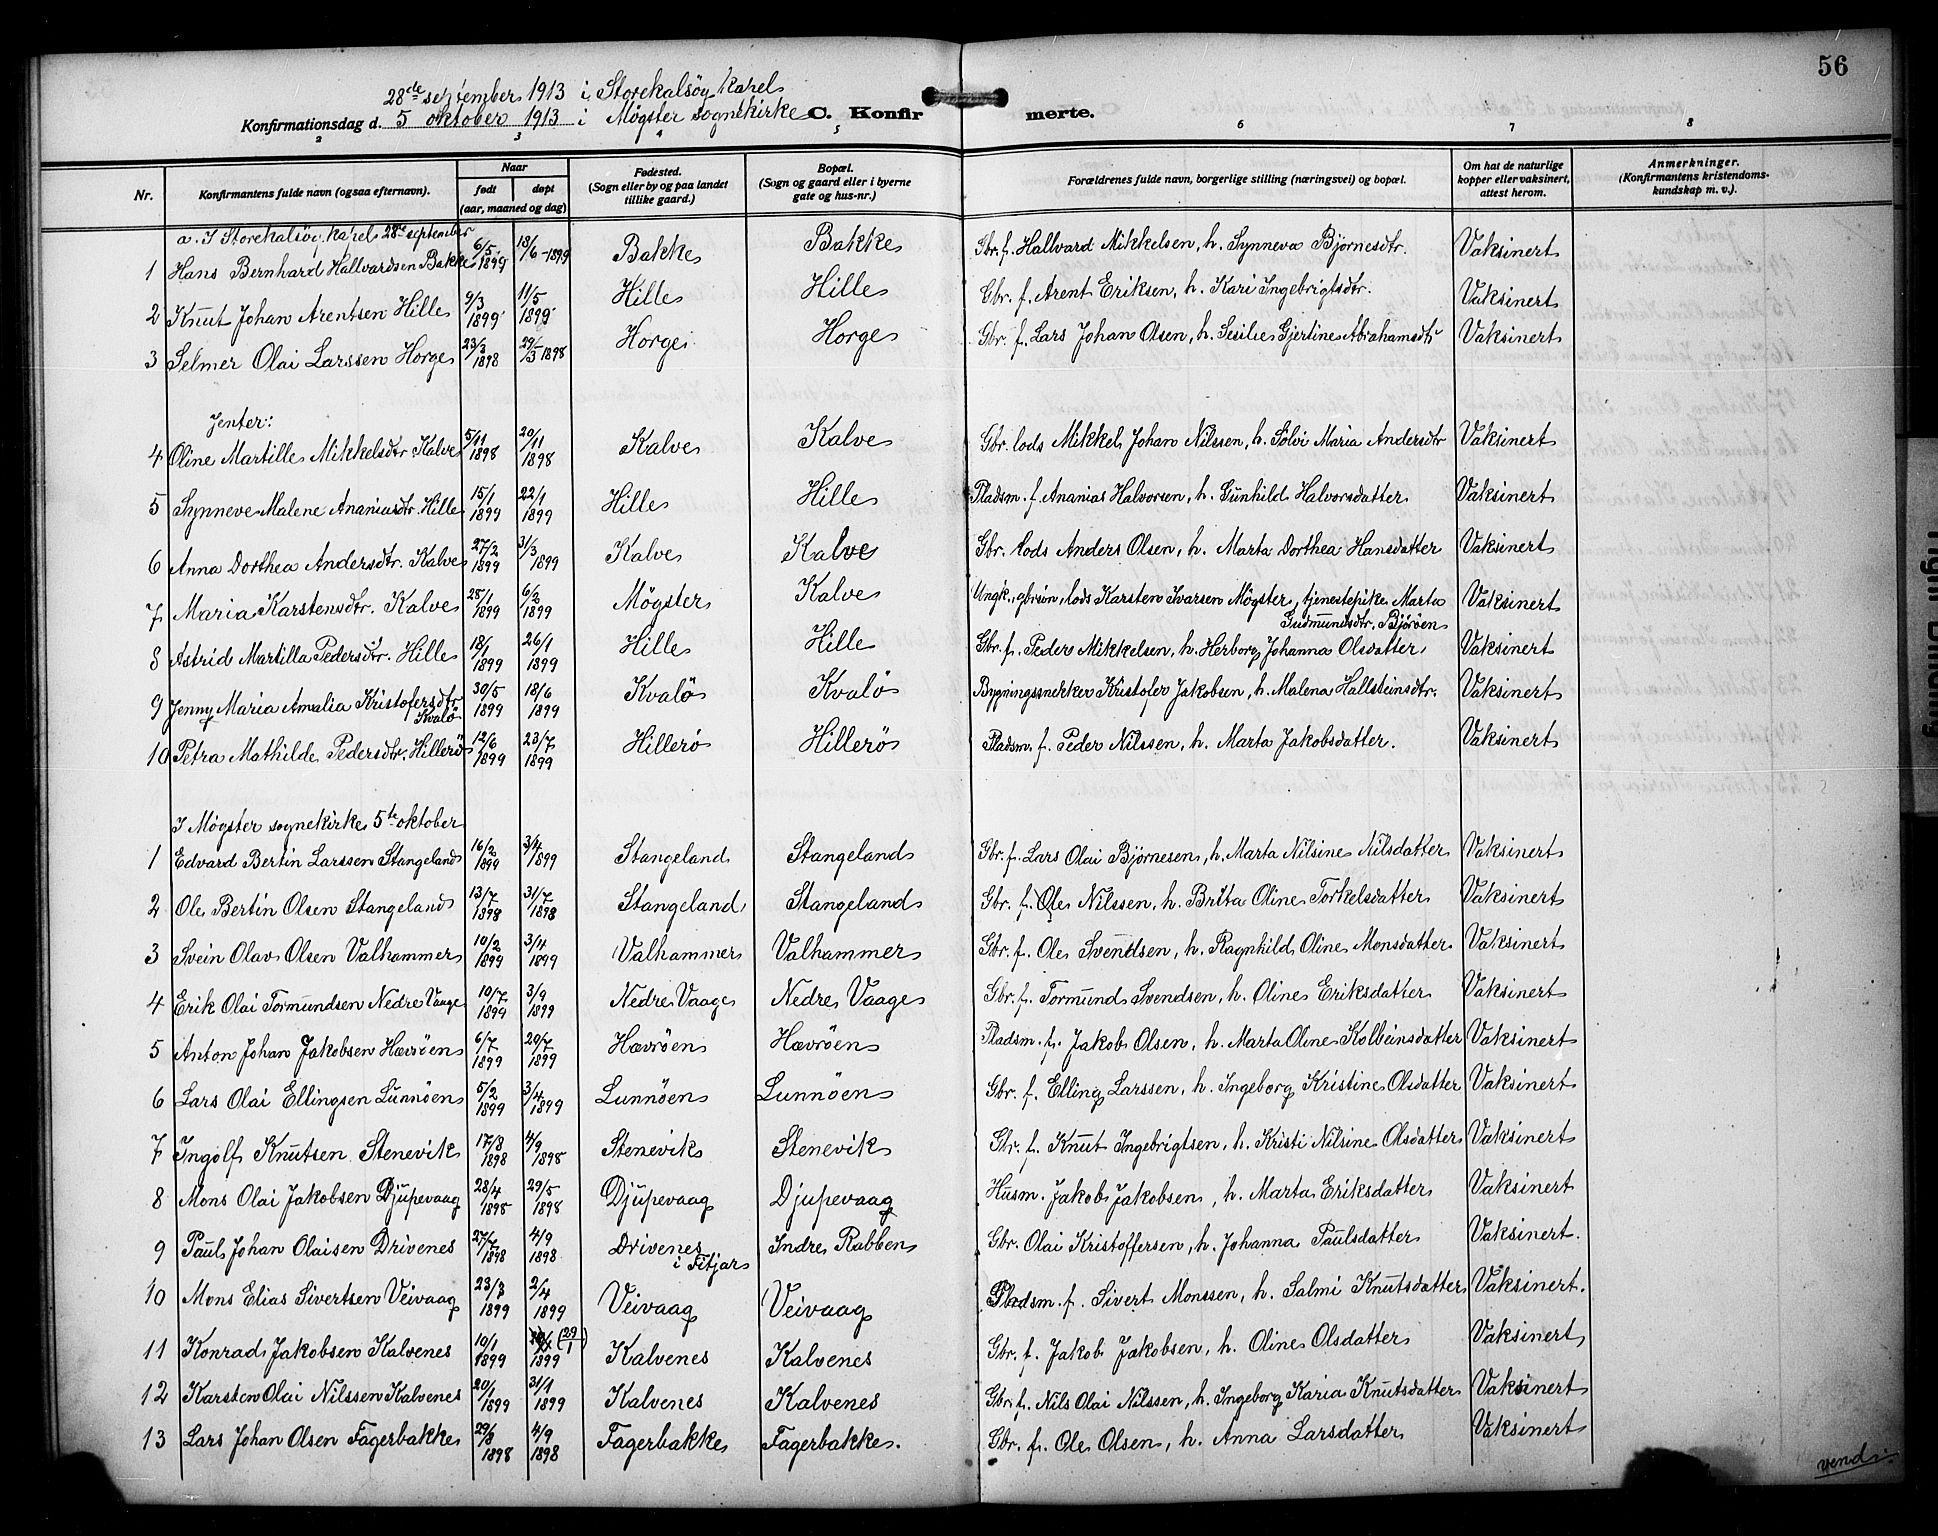 56
28de september 1913 i Storekalsøy kapel
Konfirmationsdag d. 5 oktober 1913 i Møgster sognekirke C. Konfirmerte.
2 3 4 5 6 7 8
Nr. Konfirmantens fulde navn (ogsaa efternavn). Naar født døpt (aar, maaned og dag) Fødested. (Sogn eller by og paa landet tillike gaard.) Bopæl. (Sogn og gaard eller i byerne gate og hus-nr.) Forældrenes fulde navn, borgerlige stilling (næringsvei) og bopæl. Om hat de naturlige kopper eller vaksinert, attest herom. Anmerkninger. (Konfirmantens kristendomskundskap m. v.).
a. I Storekalsøy kapel 28de september
1 Hans Bernhard Hallvardsen Bakke 6/5 1899 18/6-1899 Bakke Bakke Gbr. f. Hallvard Mikkelsen, h. Synneva Bjørnesdtr. Vaksinert
2 Knut Johan Arentsen Hille 9/3 1899 11/5 1899 Hille Hille Gbr. f. Arent Eriksen, h. Kari Ingebrigtsdtr. Vaksinert
3 Selmer Olai Larssen Horge 23/2 1898 29/3-1898 Horge Horge Gbr. f. Lars Johan Olsen, h. Sesilie Gjertine Abrahamsdtr Vaksinert
Jenter:
4 Oline Martille Mikkelsdtr. Kalve 5/11 1898 20/11 1898 Kalve Kalve Gbr. lods Mikkel Johan Nilssen, h. Sølvi Maria Andersdtr Vaksinert
5 Synneve Malene Ananiasdtr. Hille 15/1 1899 22/1 1899 Hille Hille Pladsm. f. Ananias Halvorsen, h. Gunhild Halvorsdatter Vaksinert
6 Anna Dorthea Andersdtr. Kalve 27/2 1899 31/3 1899 Kalve Kalve Gbr. lods Anders Olsen, h. Marta Dorthea Hansdatter Vaksinert
7 Maria Karstensdtr. Kalve 28/1 1899 6/2 1899 Møgster Kalve Ungk., gbrsøn, lods Karsten Ivarsen Møgster, tjenestepike Marta Gudmundsdtr. Bjørøen Vaksinert
8 Astrid Martilla Pedersdtr. Hille 18/1 1899 26/1 1899 Hille Hille Gbr. f. Peder Mikkelsen, h. Herborg Johanna Olsdatter, Vaksinert
9 Jenny Maria Amalia Kristofersdtr Kvalø 30/5 1899 18/6 1899 Kvalø Kvalø Bygningssnekker Kristofer Jakobsen, h. Malena Hallsteinsdtr. Vaksinert
10 Petra Mathilde Pedersdtr. Hillerø 12/6 1899 23/7 1899 Hillerø Hillerø Pladsm. f. Peder Nilssen, h. Marta Jakobsdatter. Vaksinert
I Møgster sognekirke 5te oktober
1 Edvard Bertin Larssen Stangeland 16/2 1899 3/4 1899 Stangeland Stangeland Gbr. f. Lars Olai Bjørnesen, h. Marta Nilsine Nilsdatter Vaksinert
2 Ole Bertin Olsen Stangeland 13/7 1898 31/7 1898 Stangeland Stangeland Gbr. f. Ole Nilssen, h. Brita Oline Torkelsdatter Vaksinert
3 Svein Olav Olsen Valhammer 10/2 1899 3/4 1899 Valhammer Valhammer Gbr. f. Ole Svendsen, h. Ragnhild Oline Monsdatter Vaksinert
4 Erik Olai Tormundsen Nedre Vaage 10/7 1899 3/9 1899 Nedre Vaage Nedre Vaage Gbr. f. Tormund Svendsen, h. Oline Eriksdatter Vaksinert
5 Anton Johan Jakobsen Hævrøen 6/7 1899 20/7 1899 Hævrøen Hævrøen Pladsm. f. Jakob Olsen, h. Marta Oline Kolbeinsdatter Vaksinert
6 Lars Olai Ellingsen Lunnøen 5/2 1899 3/4 1899 Lunnøen Lunnøen Gbr. f. Elling Larssen, h. Ingeborg Kristine Olsdatter Vaksinert
7 Ingolf Knutsen Stenevik 17/8 1898 4/9 1898 Stenevik Stenevik Gbr. f. Knut Ingebrigtsen, h. Kristi Nilsine Olsdatter Vaksinert
8 Mons Olai Jakobsen Djupevaag 28/4 1898 29/5 1898 Djupevaag Djupevaag Husm. Jakob Jakobsen, h. Marta Eriksdatter Vaksinert
9 Paul Johan Olaisen Drivenes 27/7 1898 4/9 1898 Drivenes i Fitjar Indre Rabben Gbr. Olai Kristoffersen, h. Johanna Paulsdatter Vaksinert.
10 Mons Elias Sivertsen Veivaag 23/3 1899 2/4 1899 Veivaag Veivaag Pladsm. f. Sivert Monssen, h. Salmi Knutsdatter Vaksinert.
11 Konrad Jakobsen Kalvenes 10/1 1899 (29/1) 1899 Kalvenes Kalvenes Gbr. f. Jakob Jakobsen, h. Oline Olsdatter Vaksinert
12 Karsten Olai Nilssen Kalvenes 20/1 1899 31/1 1899 Kalvenes Kalvenes Gbr. f. Nils Olai Nilssen, h. Ingeborg Karia Knutsdatter Vaksinert
13 Lars Johan Olsen Fagerbakke 29/8 1898 4/9 1898 Fagerbakke Fagerbakke. Gbr. f. Ole Olsen, h. Anna Larsdatter Vaksinert
vend: